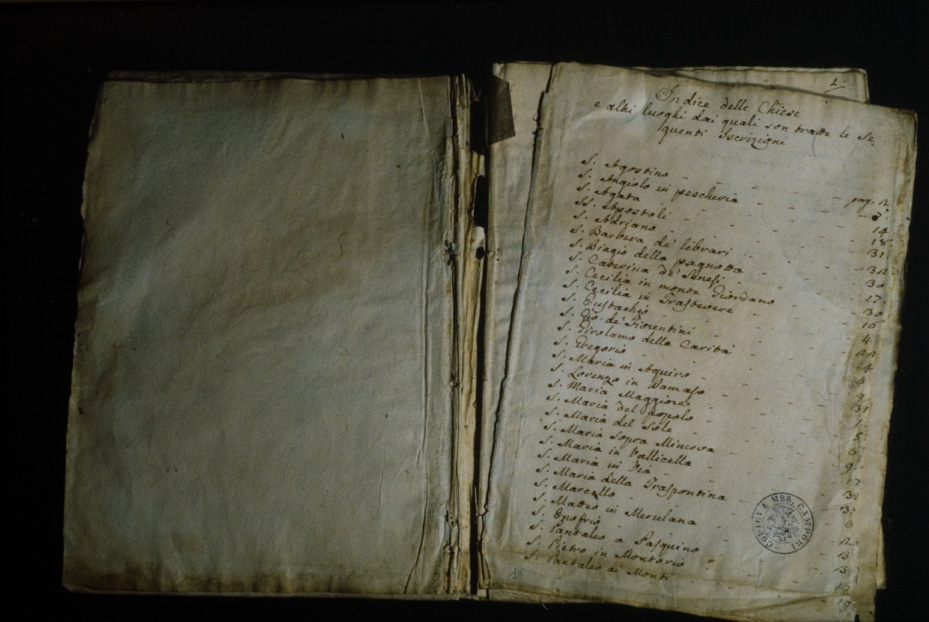 Indice delle Chiese
e altri luoghi dai quali son tratte le Se-
quenti Iscrizioni
pag. n.
S. Agostino 3
S. Angiolo in pescheria 14
S. Agata 18
SS. Apostoli 31
S. Adriano
S. Barbera de' librari 30
S. Biagio della pagnotta 17
S. Caterina de' Senesi 30
S. Cecilia in monte Giordano 10
S. Cecilia in Trastevere 4
S. Eustachio
S. Gio. de' Fiorentini
S. Girolamo della Carità
S. Gregorio
S. Maria in Aquiro
S. Lorenzo in Damaso
S. Maria Maggiore
S. Maria del Popolo
S. Maria del Sole
S. Maria Sopra Minerva
S. Maria in Vallicella
S. Maria in Via
S. Maria della Traspontina
S. Marcello
S. Matteo in Merulana
S. Onofrio
S. Pantaleo a Pasquino
S. Pietro in Montorio
S. Pantaleo ai Monti
CAMPORI